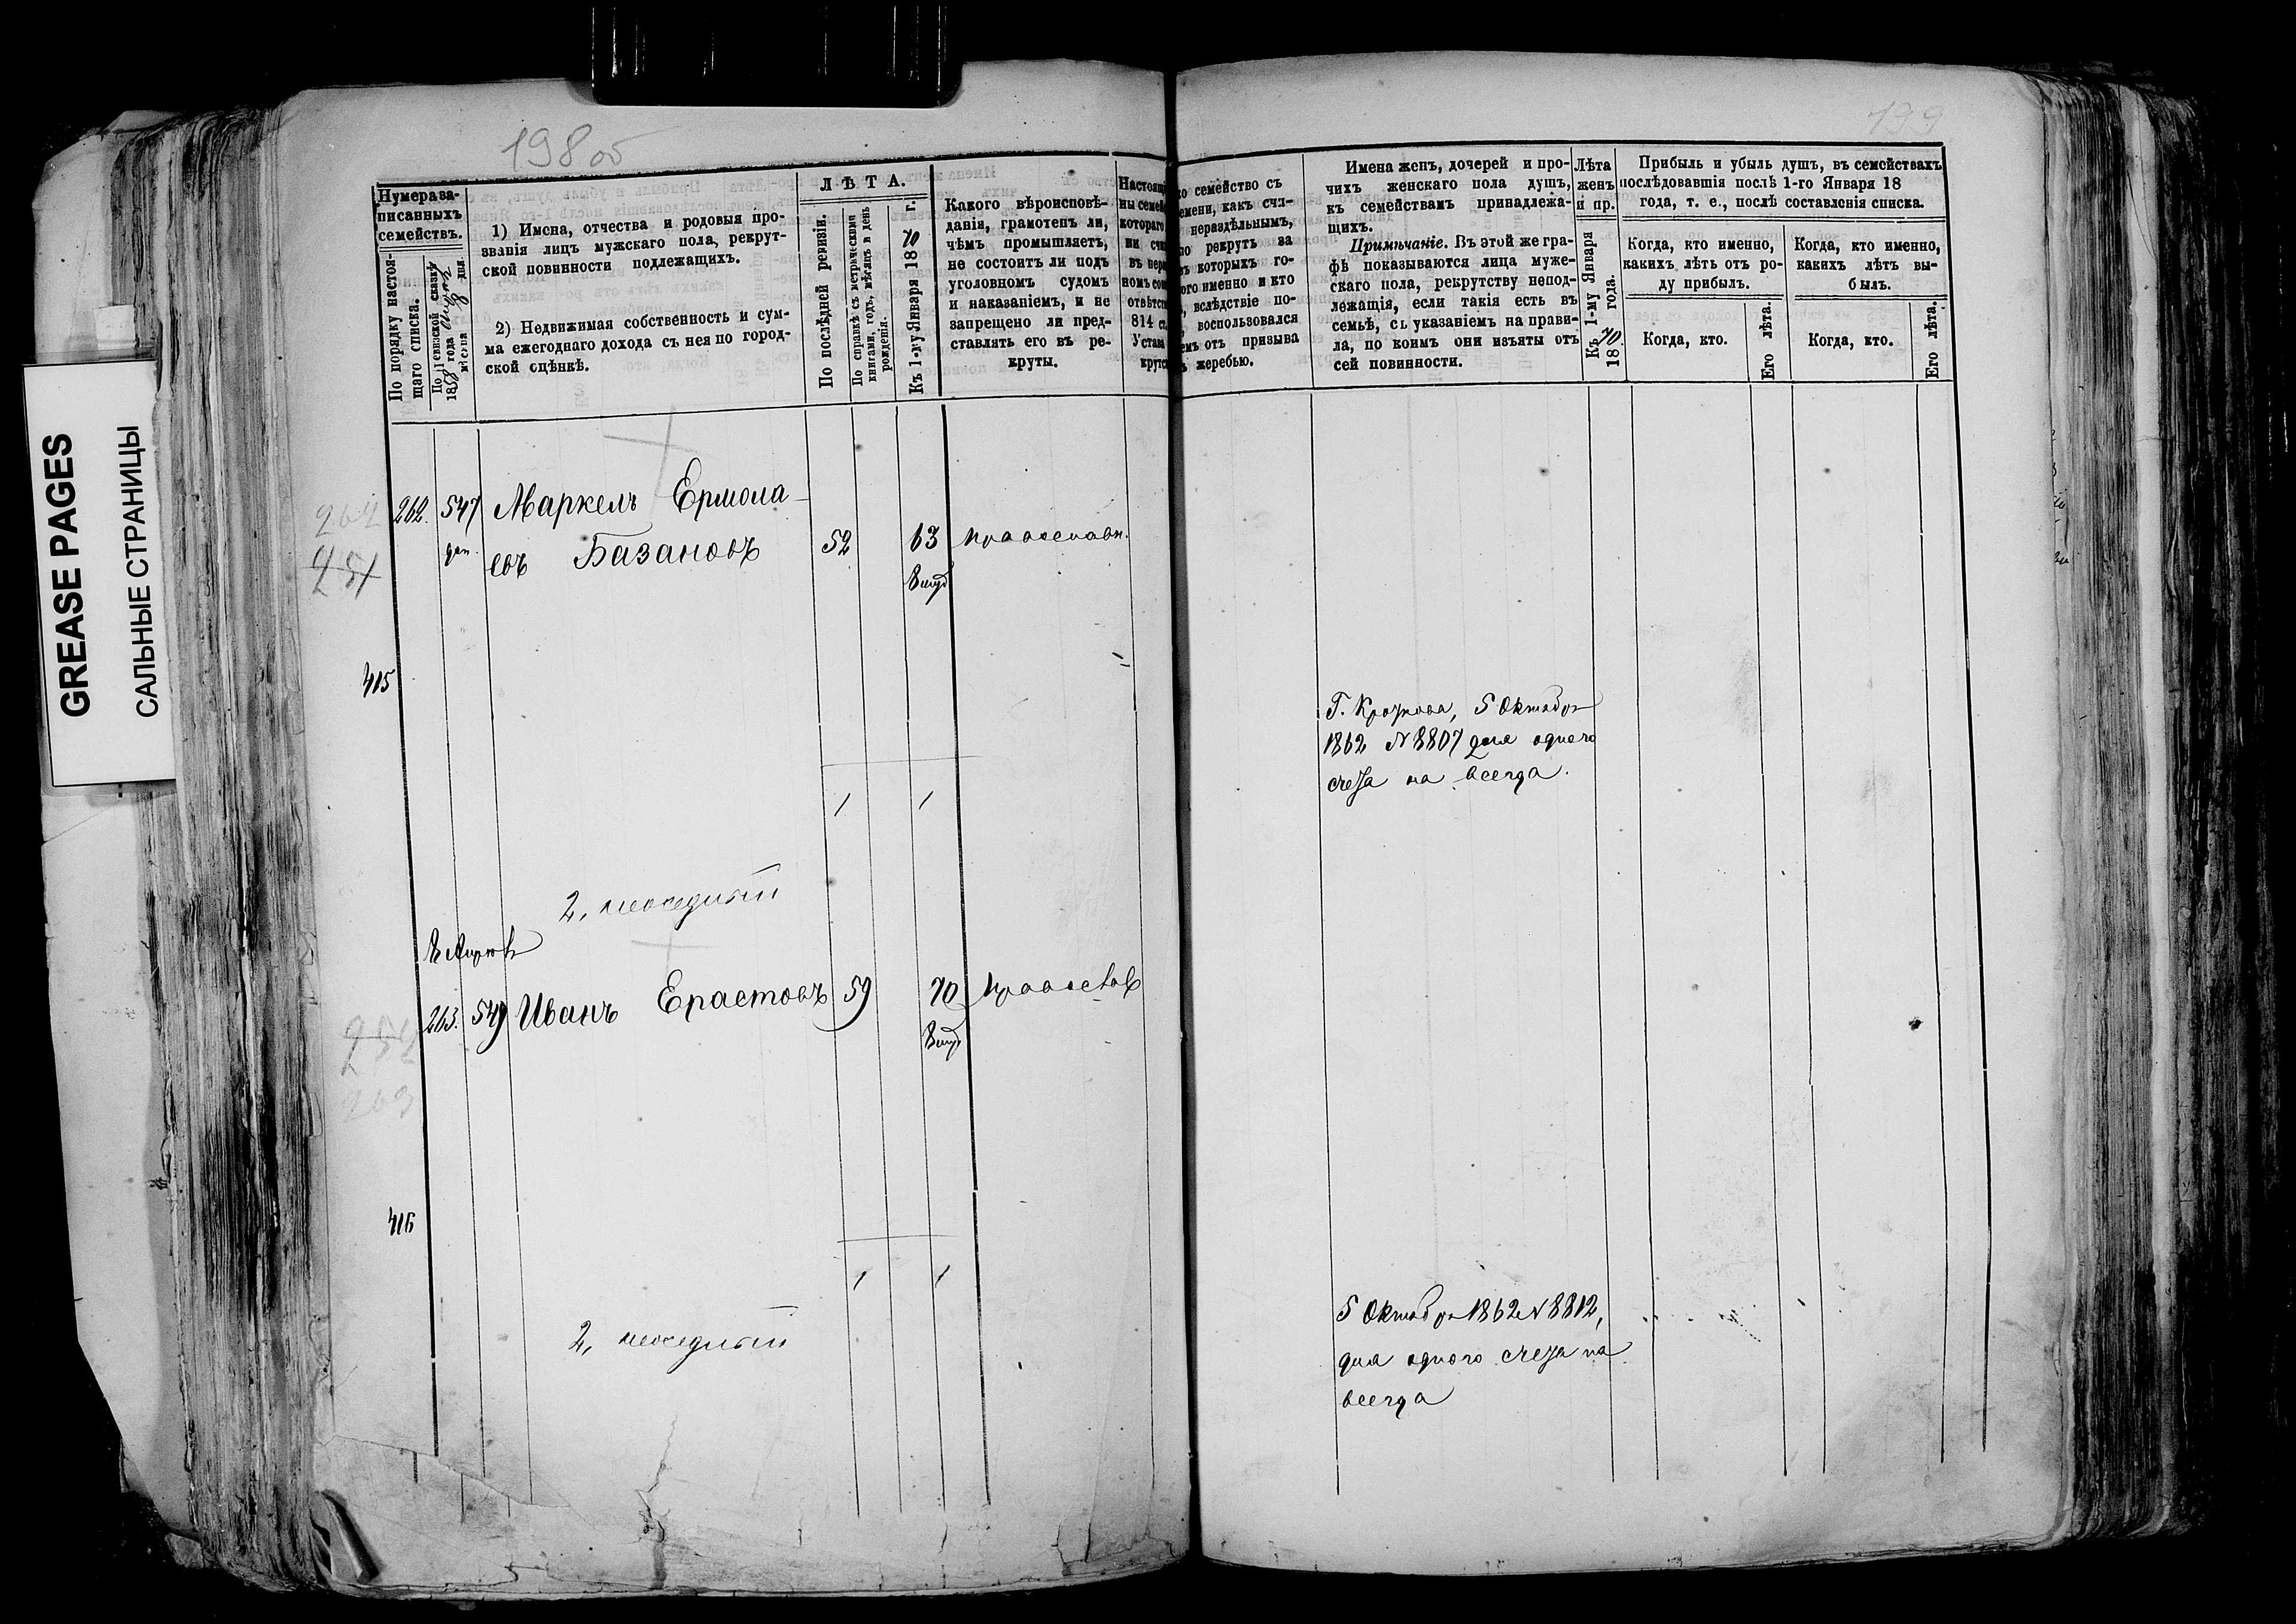 GREASE PAGES
САЛЬНЫЕ СТРАНИЦЫ
198 об
199
Нумера за-
писанныхъ
семействъ.
По порядку настоя-
щаго списка.
По ревизской сказкѣ
1858 года
мѣсяца 18 дня.
1) Имена, отчества и родовыя про-
званія лицъ мужскаго пола, рекрут-
ской повинности подлежащихъ.
2) Недвижимая собственность и сум-
ма ежегоднаго дохода съ нея по город-
ской оцѣнкѣ.
ЛѢТА.
По послѣдней ревизіи.
По справкѣ съ метрическими
книгами, годъ, мѣсяцъ и день
рожденія.
Къ 1-му Января 1870 г.
Какого вѣроисповѣ-
данія, грамотенъ ли,
чѣмъ промышляетъ,
не состоитъ ли подъ
уголовномъ судомъ
и наказаніемъ, и не
запрещено ли пред-
ставлять его въ ре-
круты.
Настоящ
ны семей
котораго
ни счи
въ нера
номъ сос
отвѣтст
814 с
Устав
крутс
ко семейство съ
емени, какъ счи-
нераздѣльнымъ,
ло рекрутъ за
въ которыхъ го-
ого именно и кто
, вслѣдствіе по-
, воспользовался
емъ отъ призыва
ъ жеребью.
Имена женъ, дочерей и про-
чихъ женскаго пола душъ,
къ семействамъ принадлежа-
щихъ.
Примѣчаніе. Въ этой же гра-
фѣ показываются лица муже-
скаго пола, рекрутству непод-
лежащія, если такія есть въ
семьѣ, съ указаніемъ на прави-
ла, по коимъ они изъяты отъ
сей повинности.
Лѣта
женъ
и пр.
Къ 1-му Января
1870 года.
Прибыль и убыль душъ, въ семействахъ
послѣдовавшія послѣ 1-го Января 18
года, т. е., послѣ составленія списка.
Когда, кто именно,
какихъ лѣтъ отъ ро-
ду прибылъ.
Когда, кто.
Его лѣта.
Когда, кто именно,
какихъ лѣтъ вы-
былъ.
Когда, кто.
Его лѣта.
262
251
262. 547 Маркелъ Ермола-
доп. евъ Базановъ 52 63 православн.
415
Г. Крочкова, 5 Октября
1862 № 8807 для одного
счета на всегда.
1 1
2, неоседлый
263. 549 Иванъ Ерастовъ 59 70 православ
252
263
416
1 1
2, неоседлый
5 Октября 1862 № 8812,
для одного счета на
всегда